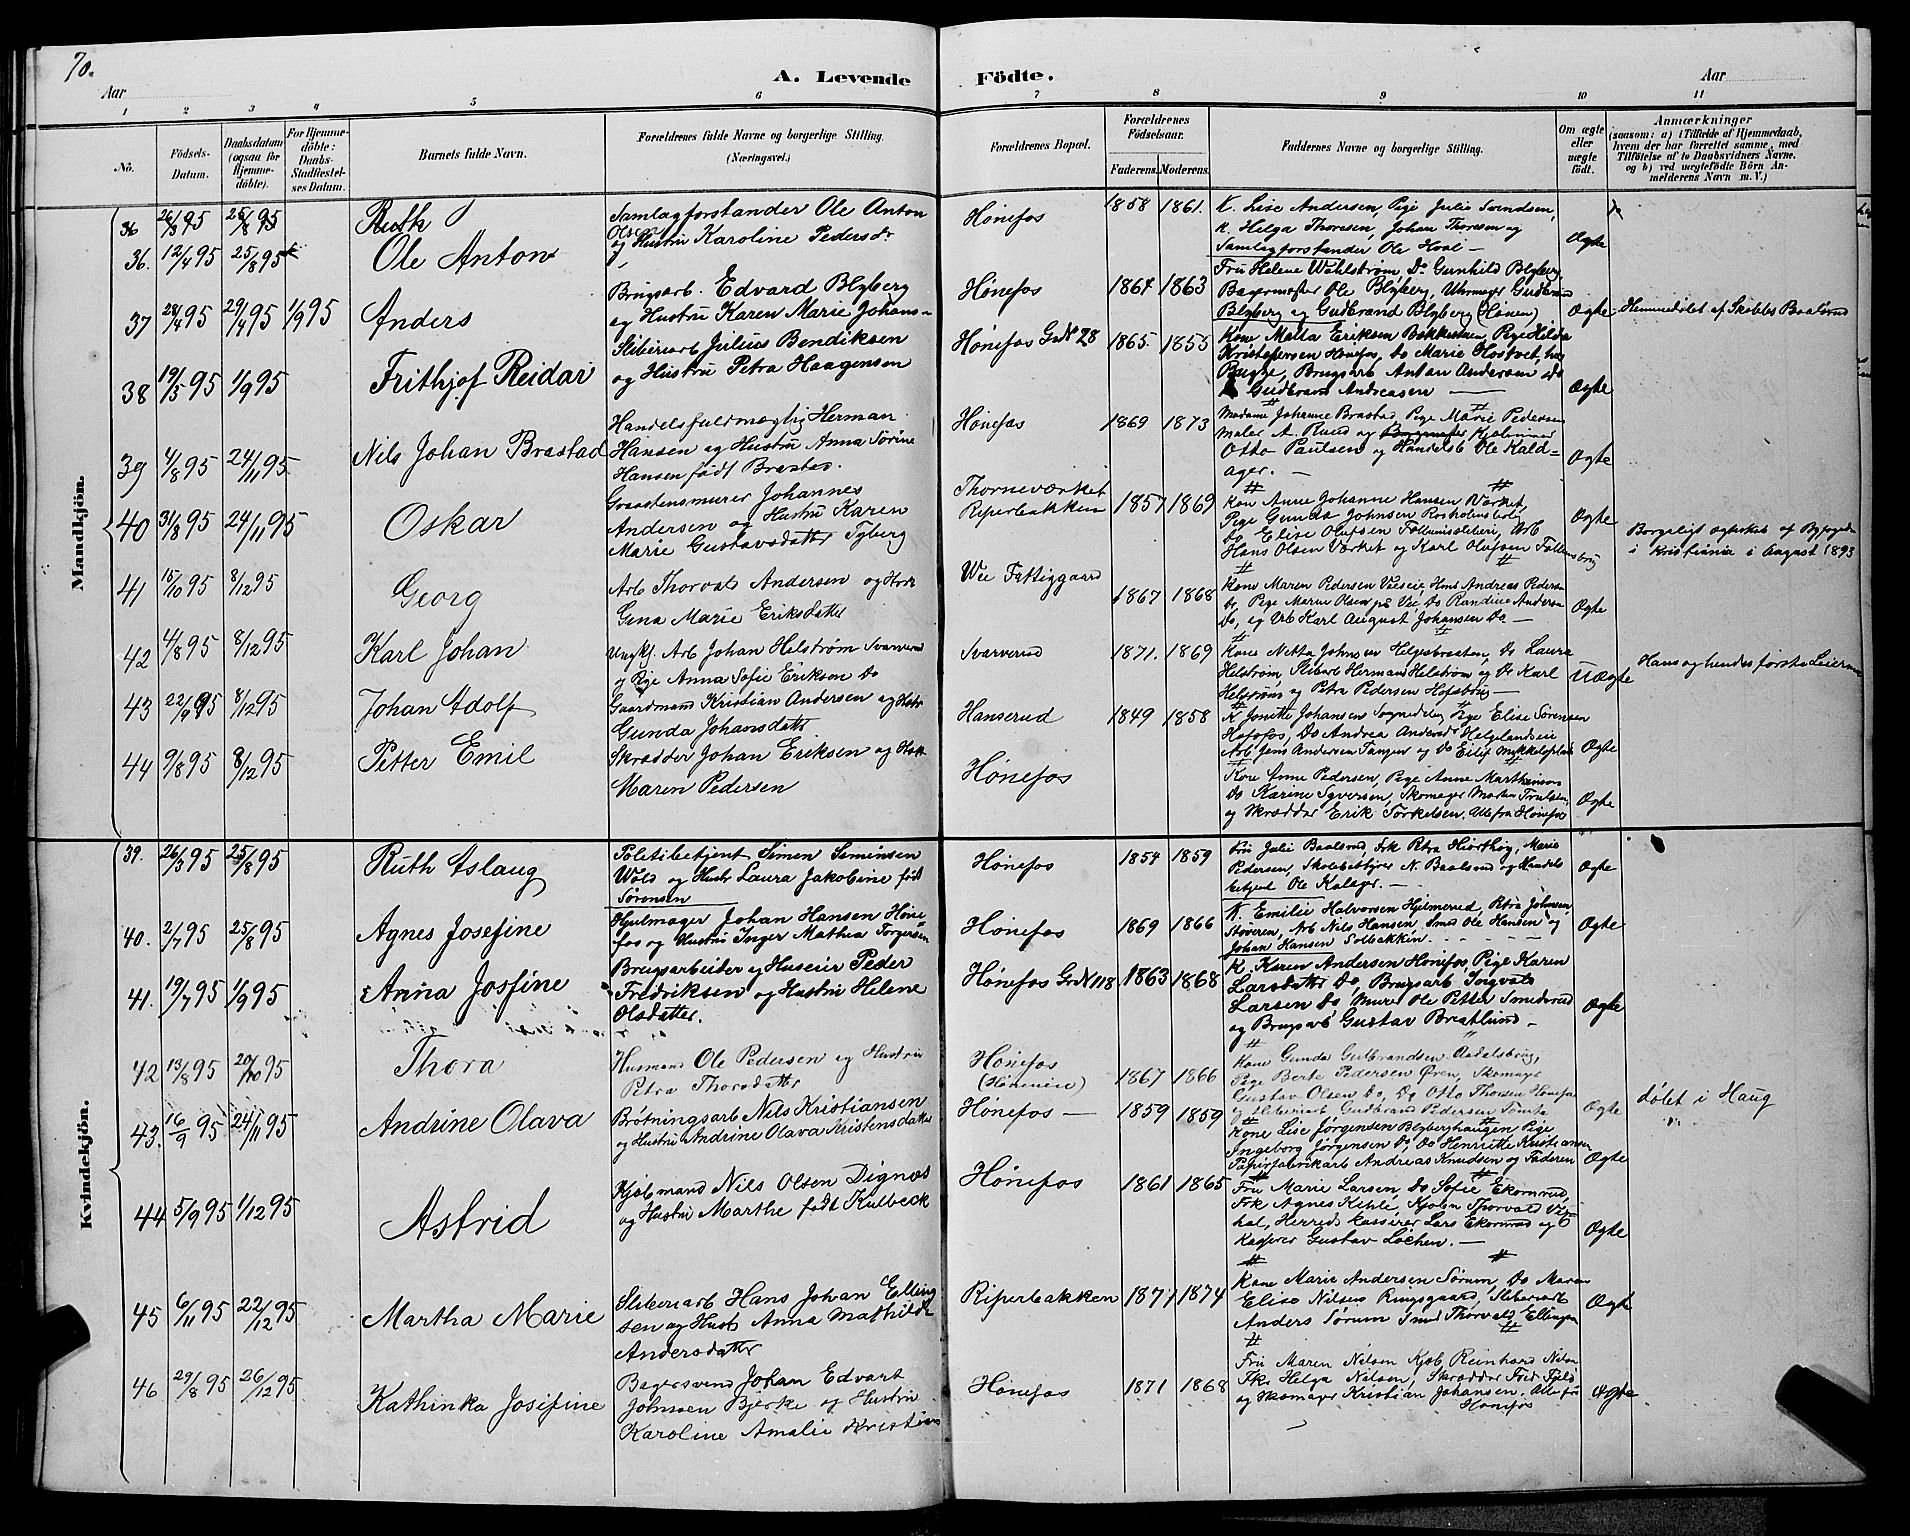 70.
A. Levende Födte.
Aar
Aar
1 2 3 4 5 6 7 8 9 10 11
No.
Födsels-Datum.
Daabsdatum (ogsaa for Hjemme-döbte).
For Hjemme-döbte: Daabs-Stadfæstel-ses Datum.
Barnets fulde Navn.
Forældrenes fulde Navne og borgerlige Stilling.
(Næringsvei.)
Forældrenes Bopæl.
Forældrenes Födselsaar.
Faderens. Moderens.
Faddernes Navne og borgerlige Stilling.
Om ægte eller uægte födt.
Anmærkninger
(saasom: a) i Tilfælde af Hjemmedaab,
hvem der har forrettet samme, med
Tilföielse af to Daabsvidners Navne.
og b) ved uægtefödte Börn An-
melderens Navn m. V.)
Mandkjön.
36 26/3 95 25/8 95 Ruth
36. 12/4 95 25/8 95 Ole Anton
Samlagforstander Ole Anton
Olsen
og Hustru Karoline Pedersdr
Hønefos 1858 1861.
K. Lise Andersen, Pige Julie Svendsen,
K. Helga Thoresen, Johan Thoresen og
Samlagforstander Ole Hval —
Ægte
37 28/4 95 29/4 95 1/9 95 Anders
Brugsarb. Edvard Blyberg
og Hustru Karen Marie Johans-
Hønefos 1864 1863
Fru Helene Wahlstrøm Do Gunhild Blyberg,
Bagermester Ole Blyberg, Uhrmager Gudbrand
Blyberg og Gudbrand Blyberg (Hønen)
Ægte
38 19/5 95 1/9 95 Frithjof Reidar
Sliberiarb Julius Bendiksen
og Hustru Petra Haagensen
Hønefos GrN 28 1865. 1855
Kristofersen Hønefos, Do Marie
Bugge, Brugsarb Anton Andersen
Gudbrand Andreasen —
Ægte
39 4/8 95 24/11 95 Nils Johan Brastad
Handelsfuldmægtig Herman
Hansen og Hustru Anna Sørine
Hansen født Brastad.
Hønefos 1869 1873
Madame Johanne Brastad, Pige Marie Pedersen
Maler A. Ruud og Kjøbmand
Otto Paulsen og Handelsb Ole Kald=
ager. —
Ægte
40 31/8 95 24/11 95 Oskar
Graastensmurer Johannes
Andersen og Hustru Karen
Marie Gustavsdatter Tyberg
Thorneværket
Riperbakken 1857 1869
Kone Anne Johanne Hansen Værket,
Pige Gunda Johnsen
Do Elise Olufsen Follumsliberi, Arb
Hans Olsen Værket og Karl Olufsen Follumsbrug
Ægte
Borgeligt egtevied af Byfogden
i Kristiania i August 1893
41 15/10 95 8/12 95 Georg
Arb Thorvald Andersen og Hustr
Gina Marie Eriksdatter
Vee Fattiggaard 1867 1868
Kone Maren Pedersen Veeseie, Hmd Andreas Pedersen
Do, Pige Marie Olsen på Vee, Do Randine Andersen
Do, og Arb Karl August Johansen Do —
Ægte
42 4/8 95 8/12 95 Karl Johan
Ungkj. Arb Johan Helstrøm Svarverud
og Pige Anna Sofie Eriksen Do
Svarverud 1871. 1869
Helstrøm, Sliberiarb Herman Helstrøm og Do Karl
Helstrøm og Petra Pedersen Hofsbrug
Uægte
Hans og hendes første Leiermaal
43 22/9 95 8/12 95 Johan Adolf
Gaardmand Kristian Andersen og Hustr
Gunda Johansdatt
Hanserud 1849 1858
K Jonette Johansen Pige Elise Sørensen
Hofsfos, Do Andrea Andersdr Helgelandseie
Arb Jens Andersen Tangen og Do
Ægte
44 9/8 95 8/12 95 Petter Emil
Skrædder Johan Eriksen og Hustr
Maren Pedersen
Hønefos
Kone Anne Pedersen, Pige Anne Marthinsen
Do Karine Syversen, Skomager Morten Trulsen,
og Skrædder Erik Torkelsen. Alle fra Hønefos
Ægte
Kvindekjön.
39. 26/3 95 25/8 95 Ruth Aslaug
Politibetjent Simen Simensen
Wold og Hustr Laura Jakobine født
Sørensen
Hønefos 1854 1859
Fru Julie Baalsrud, Frk Petra Hiorthøg, Marie
Pedersen, Skolebestyrer N. Baalsrud og Handels
betjent Ole Kalager. —
Ægte
40. 2/7 95 25/8 95 Agnes Josefine
Hjulmager Johan Hansen Høne
fos og Hustru Inger Mathea Torgersen
Hønefos 1869 1866
K. Emilie Halvorsen Hjelmerud, Petra Johnsen,
Støveren, Arb Nils Hansen, Smed Ole Hansen og
Johan Hansen Solbakken.
Ægte
41. 19/7 95 1/9 95 Anna Josfine
Brugsarbeider og Huseier Peder
Fredriksen og Hustru Helene
Olsdatter.
Hønefos GrN 118 1863 1868
K. Karen Andersen Hønefos, Pige Karen
Larsdatter Do, Brugsarb Ingvald
Larsen Do, Murer Ole Petter Smedsrud
og Brugsarb Gustav Bratlund —
Ægte
42 13/8 95 20/10 95 Thora
Husmand Ole Pedersen og Hustru
Petra Thorsdatter
Hønefos
(Hønneie) 1867 1866
Kone Gunda Gulbrandsen Aadalsbrug,
Pige Berte Pedersen Øren, Skomager
Gustav Olsen Do, Do Otto Thorsen Hønefos
og Sliberiarb Gudbrand Pedersen Tomta
Ægte
døbt i Haug
43. 16/9 95 24/11 95 Andrine Olava
Brøtningsarb Nils Kristiansen
og Hustru Andrine Olava Kristensdatter
Hønefos — 1859 1859
Kone Lise Jørgensen Blyberghaugen Pige
Ingeborg Jørgensen Do, Do Henriette Kristiansen
Papirfabrikarb Andreas Knudsen og Faderen
Ægte
44 5/9 95 1/12 95 Astrid
Kjøbmand Nils Olsen Dignæs
og Hustru Marthe født Kulbeck
Hønefos 1861 1865
Fru Marie Larsen, Do Sofie Ekornrud,
Frk Agnes Kihle, Kjøbm Thorvald
hal, Herredskasserer Lars Ekornrud og
Kasserer Gustav Lochen. —
Ægte
45 6/11 95 22/12 95 Martha Marie
Sliberiarb Hans Johan Elling
sen og Hust Anna Mathilde
Andersdatter
Riperbakken 1871 1874
Kone Marie Andersen Sørum, Do Maren
Elise Nilsen Ringsgaard, Sliberiarb
Anders Sørum Smed Thorvald Ellingsen
Ægte
46 29/8 95 26/12 95 Kathinka Josifine
Bagersvend Johan Edvart
Johnsen Bjerke og Hustru
Karoline Amalie Kristians
Hønefos 1871 1868
Fru Maren Nilsen Kjøb Reinhard Nilsen
Frk Helga Nilsen, Skrædder Fred Fjeld
og Skomager Kristian Johansen. Alle fra
Hønefos
Ægte